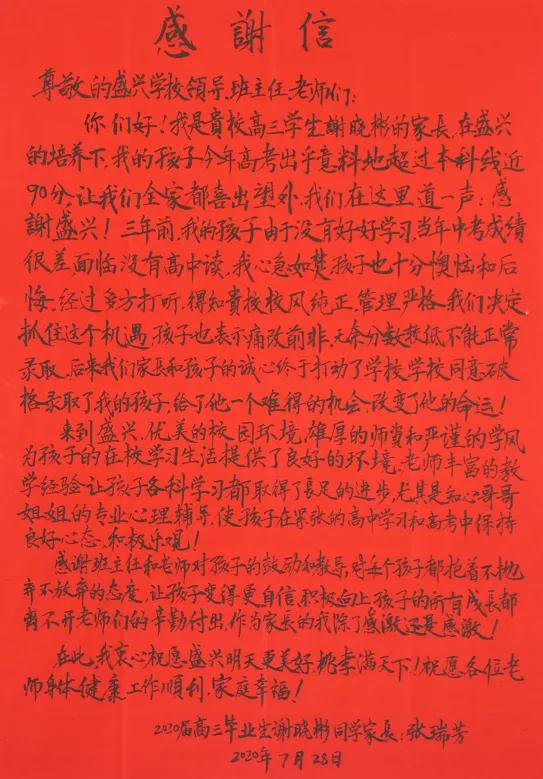 感謝信
尊敬的盛兴学校领导、班主任、老师们：
你们好！我是貴校高三学生謝晓彬的家長，在盛兴
的培养下，我的孩子今年高考出乎意料地超过本科线近
90分，让我们全家都喜出望外，我们在这里道一声：感
謝盛兴！三年前，我的孩子由于没有好好学习，当年中考成绩
很差面临没有高中读，我心急如焚，孩子也十分懊恼和后
悔，经过多方打听，得知貴校校风纯正，管理严格，我们决定
抓住这个机遇，孩子也表示痛改前非，无奈分数较低不能正常
录取，后来我们家長和孩子的诚心终于打动了学校，学校同意破
格录取了我的孩子，给了他一个难得的机会，改变了他的命运！
来到盛兴，优美的校园环境，雄厚的师資和严谨的学风
为孩子的在校学习生活提供了良好的环境，老师丰富的教
学经验让孩子各科学习都取得了長足的进步，尤其是知心哥哥
姐姐的专业心理辅导，使孩子在紧张的高中学习和高考中保持
良好心态，积极乐观！
感谢班主任和老师对孩子的鼓动和教导，对每个孩子都抱着不抛
弃不放弃的态度，让孩子变得更自信，积极向上，孩子的所有成長都
离不开老师们的辛勤付出，作为家長的我除了感激还是感激！
在此，我衷心祝愿盛兴明天更美好，桃李满天下！祝愿各位老
师身体健康，工作順利，家庭幸福！
2020届高三毕业生谢晓彬同学家長：张瑞芳
2020年7月28日